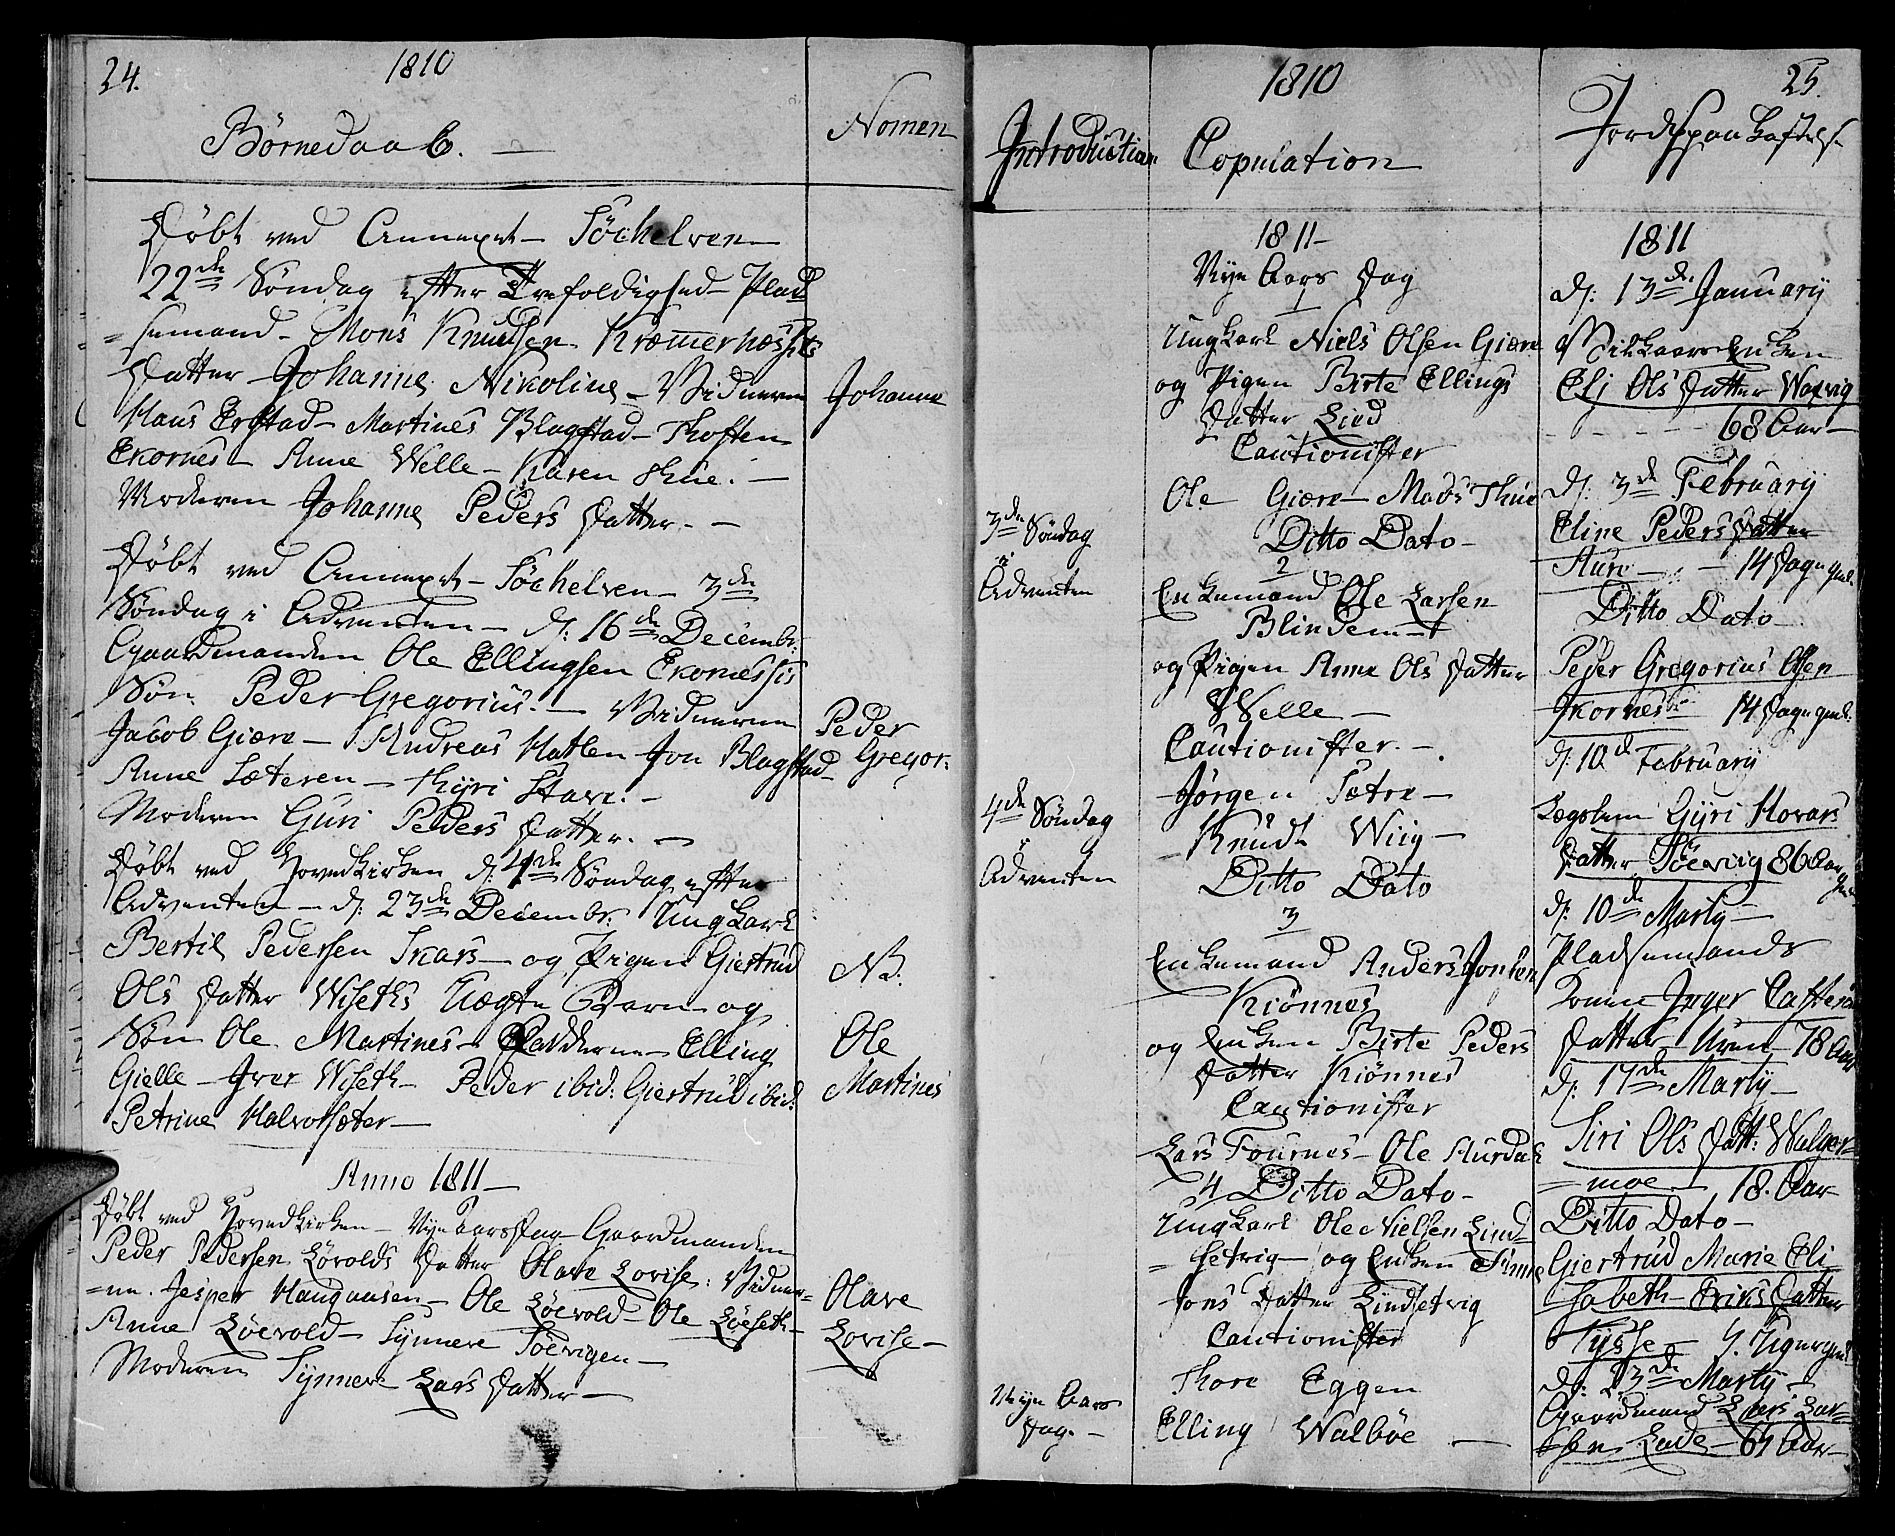 24.
1810
Børnedaab. —
Nomen
Døbt ved Annexet Söchelven
22de Søndag efter Trefoldighed Plad
=semand Mons Knudsen Kræmmernæssets
Datter Johanne Nikoline — Vidnerne
Hans Erstad — Martines Blagstad — Thosten
Ekornes — Anne Welle — Karen Thue. —
Moderen Johanne Peders Datter. —
Johanne
Døbt ved Annexet — Söchelven — 3de
Søndag i Adventen — d: 16de Decembr:
Gaardmanden Ole Ellingsen Ekornessis
Søn Peder Gregorius. — Vidnerne
Jacob Giære — Andreas Hatlen Jon Blagstad
Anne Sæteren — Thyri Stave. —
Moderen Guri Peders Datter. —
Peder
Gregor:
Døbt ved Hovedkirken d: 4de Søndag efter
Adventen — d: 23de Decembr. Ungkarl
Bertil Pedersen Skars — og Pigen Giertrud
Ols Datter Wiseths Uægte Barn og
Søn Ole Martines — Fadderne — Elling
Gielle — Iver Wiseth — Peder ibid: Giertrud ibid:
Petrine Halvorsæter —
NB.
Ole
Martines
Anno 1811 —
Døbt ved Hovedkirken — Nyt Aars Dag — Gaardmanden
Peder Pedersen Lövolds Datter Olave Lovise: Vidner=
=ne. Jesper Haugaasen — Ole Löevold — Ole Löeseth —
Anne Löevold — Synneve Söevigen —
Moderen Synneve Lars Datter —
Olave
Lovise —
1810
25.
Introduction
Copulation
Jordspaakastelse
3de Søndag
i
Adventen
4de Søndag
i
Adventen
Nye Aars
Dag. —
1811 —
Nye Aars Dag
1
Ungkarl Niels Olsen Giære
og Pigen Birte Ellings
Datter Lied
Cautionister
Ole Giære — Mads Thue
Ditto Dato —
2
Enkemand Ole Larsen
Blindem —
og Pigen Anne Ols Datter
Welle —
Cautionister. —
Jørgen Sætre —
Knudt Wiig —
Ditto Dato
3
Enkemand Anders Jonsen
Kiönnes
og Enken Birte Peders
Datter Kiönnes
Cautionister
Lars Tournes — Ole Aurdal
4 Ditto Dato —
Ungkarl Ole Nielsen Lind=
=setvig — og Enken Sinne
Jons Datter Lindsetvig
Cautionister
Thore Eggen
Elling Walböe —
1811
d: 13de January
Vilkaarsenken
Eli Ols Datter Waxvig
68 Aar —
d: 3de February
Eline Peders Datter
Aure — 14 Dage gml.
Ditto Dato —
Peder Gregorius Olsen
Ikornes 14 Dage gml.
d: 10de February
Lægslem Gyri Hovars
Datter Söevig 86 Aar
gml.
d: 10de Marty —
Pladsemands
Konen Inger Casters
Datter Uren 78 Aar
d: 17de Marty —
Siri Ols Datt: Walger=
=moe 18. Aar
Ditto Dato —
Giertrud Marie Eli
sabeth Eriks Datter
Tysse — 7. Uger gml.
d: 23de Marty —
Gaardmand Lars Lar=
=sen Lade — 67 Aar —